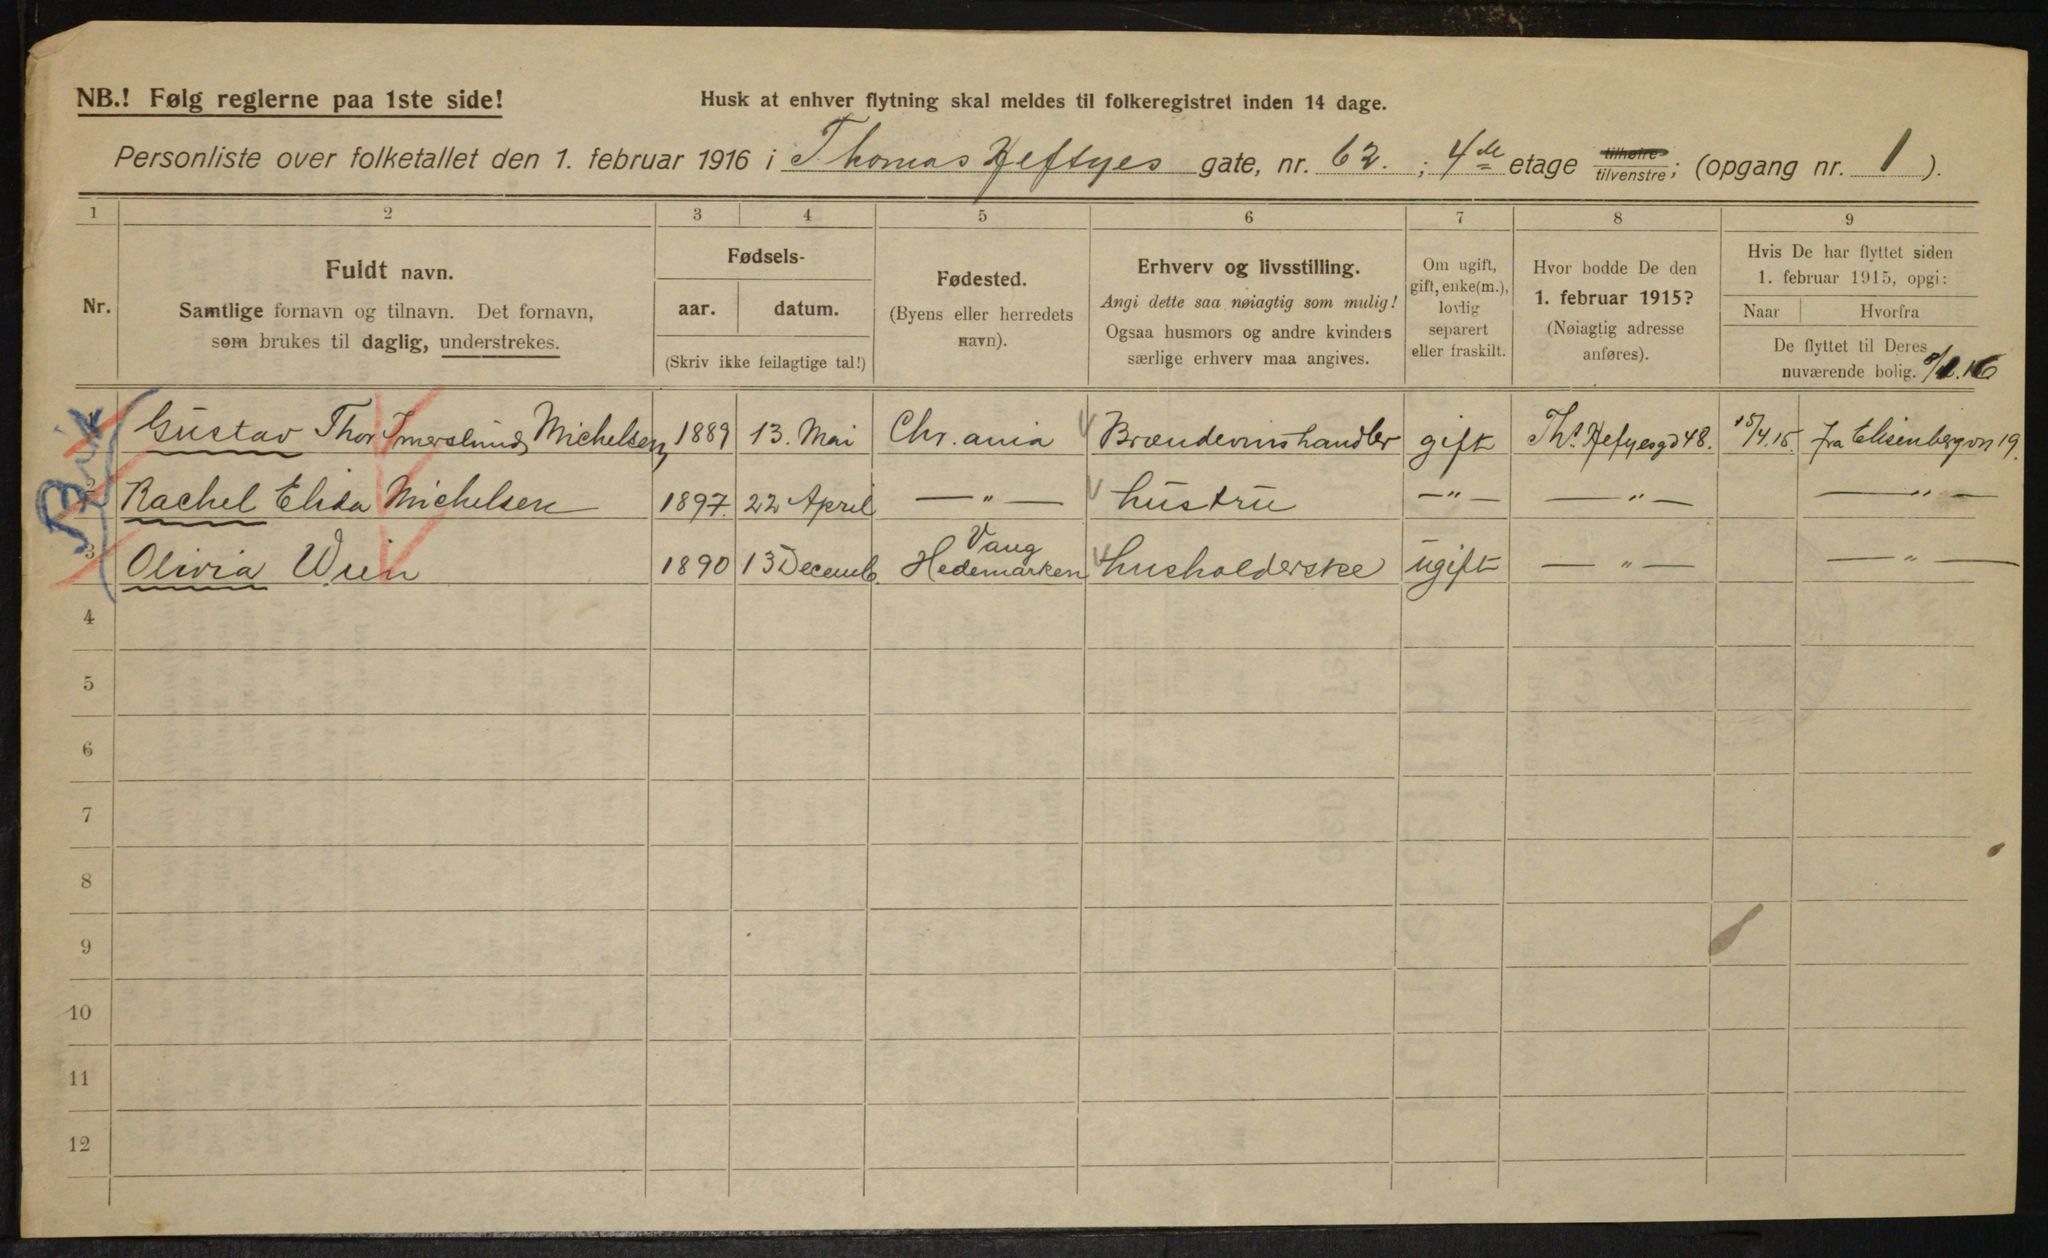 NB.! Følg reglerne paa 1ste side!
Husk at enhver flytning skal meldes til folkeregistret inden 14 dage.
Personliste over folketallet den 1. februar 1916 i Thomas Heftyes gate, nr. 62. ; 4de etage tilhøire tilvenstre; (opgang nr. 1 ).
1 2 3 4 5 6 7 8 9
Nr.
Fuldt navn.
Samtlige fornavn og tilnavn. Det fornavn,
som brukes til daglig, understrekes.
Fødsels-
aar. datum.
(Skriv ikke feilagtige tal!)
Fødested.
(Byens eller herredets
navn).
Erhverv og livsstilling.
Angi dette saa nøiagtig som mulig!
Ogsaa husmors og andre kvinders
særlige erhverv maa angives.
Om ugift,
gift, enke(m.),
lovlig
separert
eller fraskilt.
Hvor bodde De den
1. februar 1915?
(Nøiagtig adresse
anføres).
Hvis De har flyttet siden
1. februar 1915, opgi:
Naar Hvorfra
De flyttet til Deres
nuværende bolig.
1 Gustav Thor Imerslund Michelsen, 1889 13. Mai Chr.ania Brændevinshandler gift Ths Heftyesgd 48. 15/4.15. fra Elisenbergvn 19.
2 Rachel Elida Michelsen 1897. 22 April — " — hustru — " — — " — — " —
3 Olivia Wein 1890 13 Decemb. Vang Hedemarken husholderske ugift — " — — " —
4
5
6
7
8
9
10
11
12